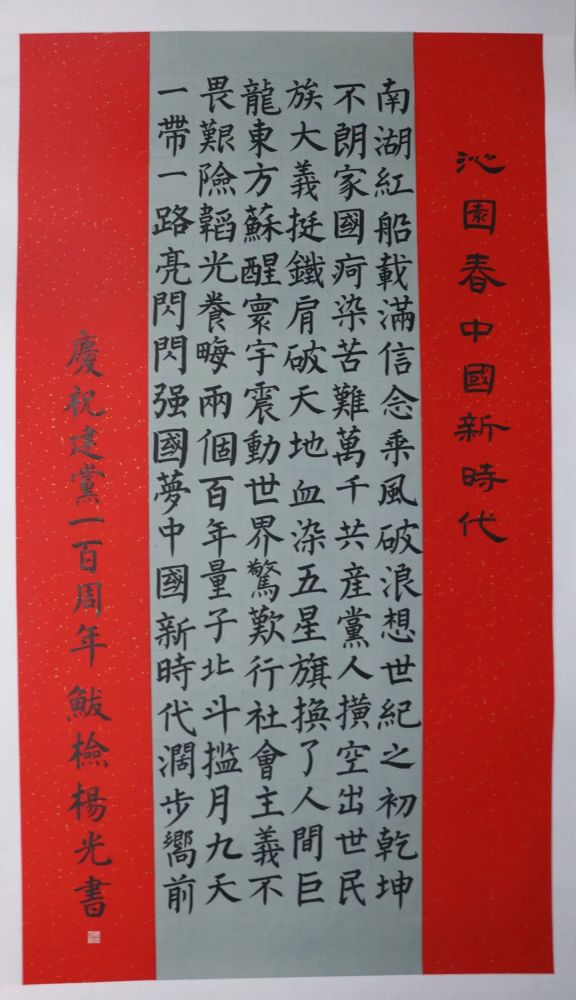 沁園春中國新時代
南湖紅船載滿信念乘風破浪想世紀之初乾坤
不朗家國疴染苦難萬千共産黨人撗空出世民
族大義挺鐵肩破天地血染五星旗換了人間巨
龍東方蘇醒寰宇震動世界驚歎行社會主義不
畏艱險韜光養晦兩個百年量子北斗㨫月九天
一帶一路亮閃閃强國夢中國新時代濶步嚮前
慶祝建黨一百周年鮁檢楊光書